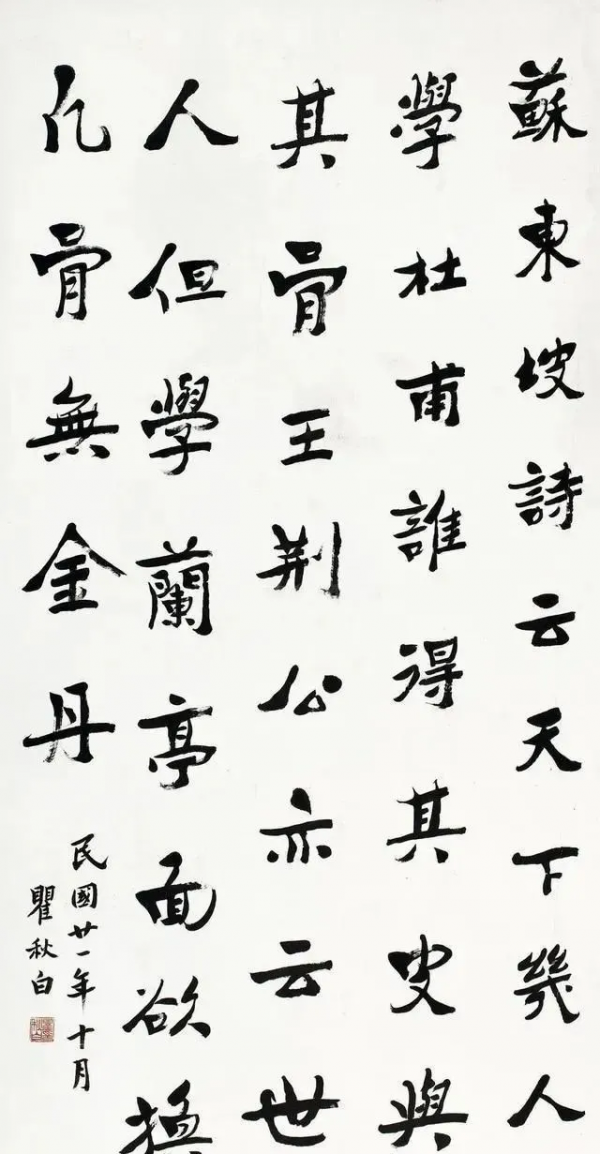 蘇東坡詩云天下幾人
學杜甫誰得其皮與
其骨王荊公亦云世
人但學蘭亭面欲換
凡骨無金丹
民國廿一年十月
瞿秋白